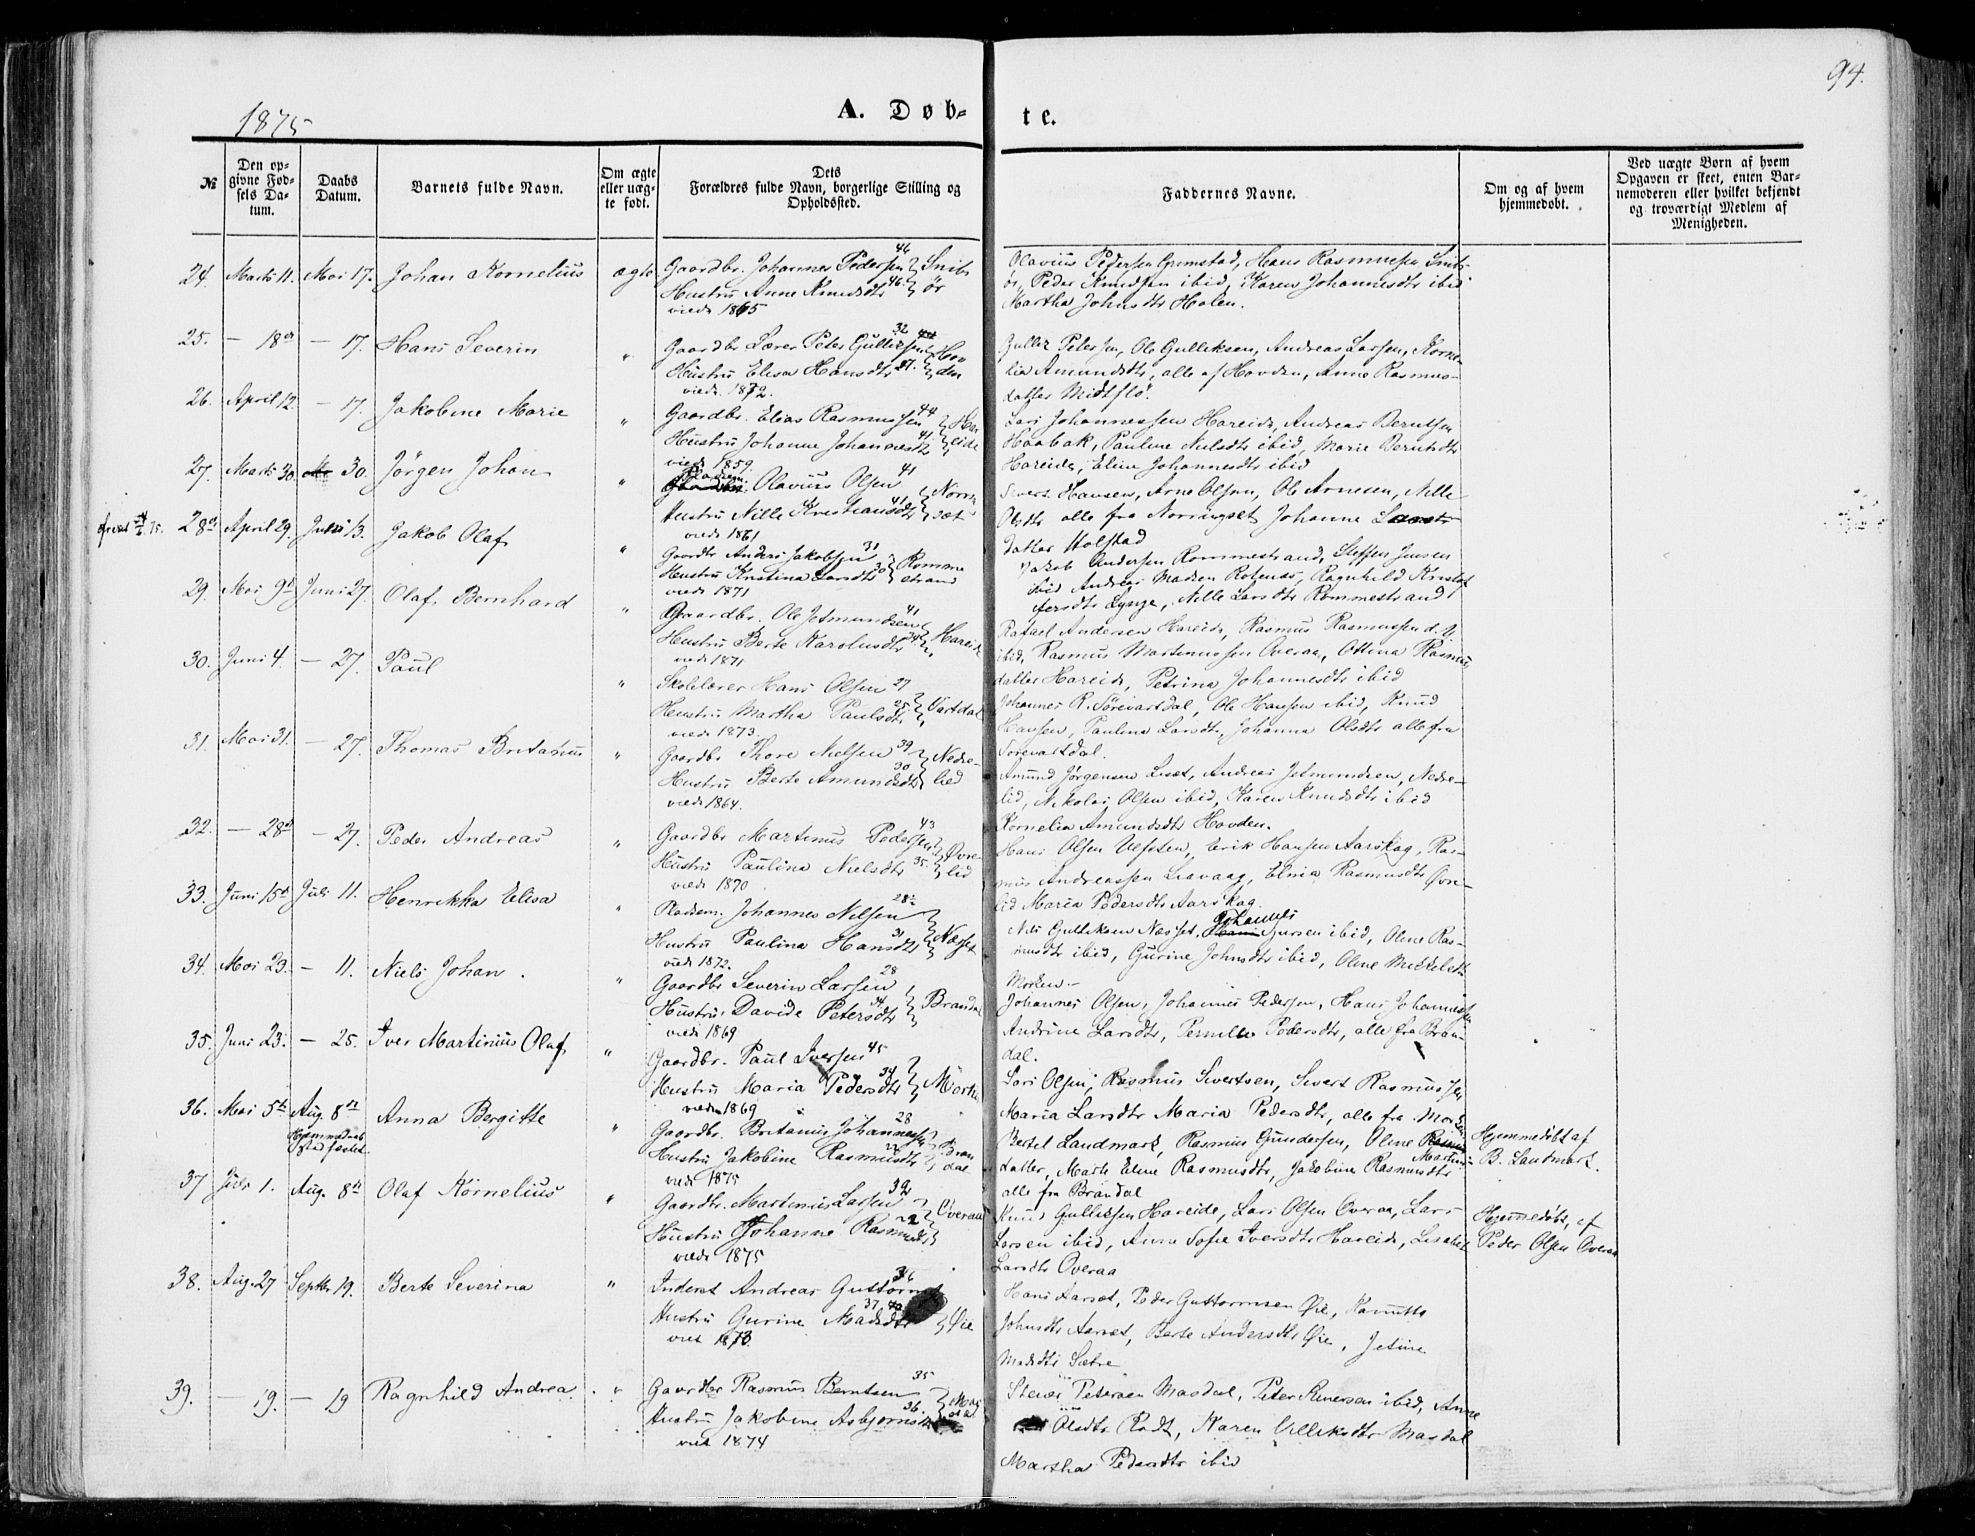 94.
1875
A. Døb-
te.
№
Den op-
givne Fød-
sels Da-
tum.
Daabs
Datum.
Barnets fulde Navn.
Om ægte
eller uæg-
te født.
Dets
Forældres fulde Navn, borgerlige Stilling og
Opholdssted.
Faddernes Navne.
Om og af hvem
hjemmedøbt.
Ved uægte Børn af hvem
Opgaven er skeet, enten Bar-
nemoderen eller hvilket bekjendt
og troværdigt Medlem af
Menigheden.
24. Marts 11. Mai 17. Johan Kornelius ægte Gaardbr. Johannes Pedersen 46
Hustru Anne Knudsdtr 46.
viede 1865
Olavius Pedersen Grimstad, Hans Rasmussen Snit-
ør, Peder Knudsen ibid, Karen Johannesdtr ibid
Martha Johnsdtr Holen.
25. — 18de — 17. Hans Severin " Gaardbr Lærer Peter Gulliksen 32
Hustru Elisa Hansdtr 27.
viede 1872.
Petersen, Ole Gulliksen, Andreas Larsen, Korne-
lia Amundsdtr, alle af Hovden, Anne Rasmus-
datter Midtflø.
26. April 12. — 17. Jakobine Marie " Gaardbr. Elias Rasmussen 44
Hustru Johanne Johannesdtr 41.
viede 1859.
Lars Johannessen Hareide, Andreas Berntsen
Haabak, Pauline Nielsdtr ibid, Marie Berntsdtr
Hareide, Eline Johannesdtr ibid
27. Marts 30. 30. Jørgen Johan " Pladsm. Olavius Olsen 41
Hustru Nille Kristiansdtr 41
viede 1861
Sivert Hansen, Arne Olsen, Ole Arnesen, Nille
Olsdtr alle fra Norringset, Johanne Lars-
datter Holstad
28de April 29. Juni 13. Jakob Olaf " Gaardbr Anders Jakobsen 31
Hustru Kristina Larsdtr 30 Romme
strand
viede 1871
Jakob Andersen Rommestrand, Steffen Jensen
ibid Andreas Madsen Rotenes, Ragnhild Kristof-
fersdtr Lynge, Nille Larsdtr Rommestrand
29. Mai 9de Juni 27. Olaf Bernhard " Gaardbr. Ole Jetmundsen 41
Hustru Berte Karolusdtr 34 Hareide
viede 1871
Rafael Andersen Hareide, Rasmus Rasmussen d. y.
ibid, Rasmus Martinussen Overaa, Ottina Rasmus
datter Hareide, Petrina Johannesdtr ibid
30. Juni 4. — 27. Paul " Skolelærer Hans Olsen 27
Hustru Martha Paulsdtr 25 Vartdal
viede 1873.
Johannes R. Sørevartdal, Ole Hansen ibid, Knud
Hansen, Paulina Larsdtr, Johanna Olsdtr alle fra
Sørevartdal.
31. Mai 31. — 27. Thomas Britanus " Gaardbr Thore Nielsen 39
Hustru Berte Amundsdtr 30 Nedre-
lied
viede 1864.
Amund Jørgensen Liset, Andreas Jetmundsen, Nedre-
lid, Nikolai Olsen ibid, Karen Knudsdtr ibid
Kornelia Amundsdtr Hovden.
32. — 28de — 27. Peder Andreas " Gaardbr Martinus Pedersen 43
Hustru Paulina Nielsdtr 35. Øvre-
lid
viede 1870
Hans Olsen Ulfsten, Erik Hansen Aarskag, Ras-
mus Andreassen Liavaag, Elina Rasmusdtr Øvre-
lid Maria Pedersdtr Aarskag.
33. Juni 15de Juli 11. Henrikka Elisa " Pladsm. Johannes Nilsen 28
Hustru Paulina Hansdtr 31 Næsset
viede 1872.
Nils Gulliksen Næsset, Johannes Iversen ibid, Oline Ras-
musdtr ibid, Gurine Johnsdtr ibid, Oline Mikkelsdtr
Morken.
34. Mai 23. — 11. Niels Johan. " Gaardbr Severin Larsen 28
Hustru Davide Petersdtr 34 Brandal
viede 1869
Johannes Olsen, Johannes Pedersen, Hans Johannessen
Andrine Larsdtr, Pernille Pedersdtr, alle fra Bran-
dal.
35. Juni 23. — 25. Iver Martinius Olaf " Gaardbr. Paul Iversen 45
Hustru Maria Pedersdtr 34
viede 1869
Lars Olsen, Rasmus Sivertsen, Sivert Rasmussen
Maria Larsdtr Maria Pedersdtr, alle fra
36. Mai 5te Aug. 8de Anna Bergitte " Gaardbr. Britanus Johannessen 28
Hustru Jakobine Rasmusdtr Bran
dal
viede 1875
Bertel Landmark, Rasmus Gundersen, Oline Martinus-
datter, Marte Eline Rasmusdtr, Jakobine Rasmusdtr
alle fra Brandal
Hjemmedøbt af
B. Landmark.
37 Juli 1. Aug. 8de Olaf Kornelius " Gaardbr. Martinus Larsen 32
Hustru Johanne Rasmusdtr 22 Overaa
viede 1875
Knud Gulliksen Hareide, Lars Olsen Overaa, Lars
Larsen ibid, Anna Sofie Iversdtr Hareide, Lisabet
Larsdtr Overaa
Hjemmedøbt, af
Peder Olsen Overaa
38. Aug. 27 Septbr 19. Berte Severina " Inderst Andreas Guttorms
Hustru Gurine Madsdtr 37 Øie
viet 1873.
Hans Aarset, Peder Guttormsen Øie,
Johnsdtr Aarset, Berte Andersdtr Øie, Jetine
Madsdtr Sætre
39. — 19. — 19 Ragnhild Andrea " Gaardbr Rasmus Berntsen 35
Hustru Jakobine Asbjørnsdtr 36.
viet 1874
Steinar Petersen Masdal, Peter Einersen ibid, Anne
Olsdtr Rødt, Karen Villiksdtr Masdal
Martha Pedersdtr ibid